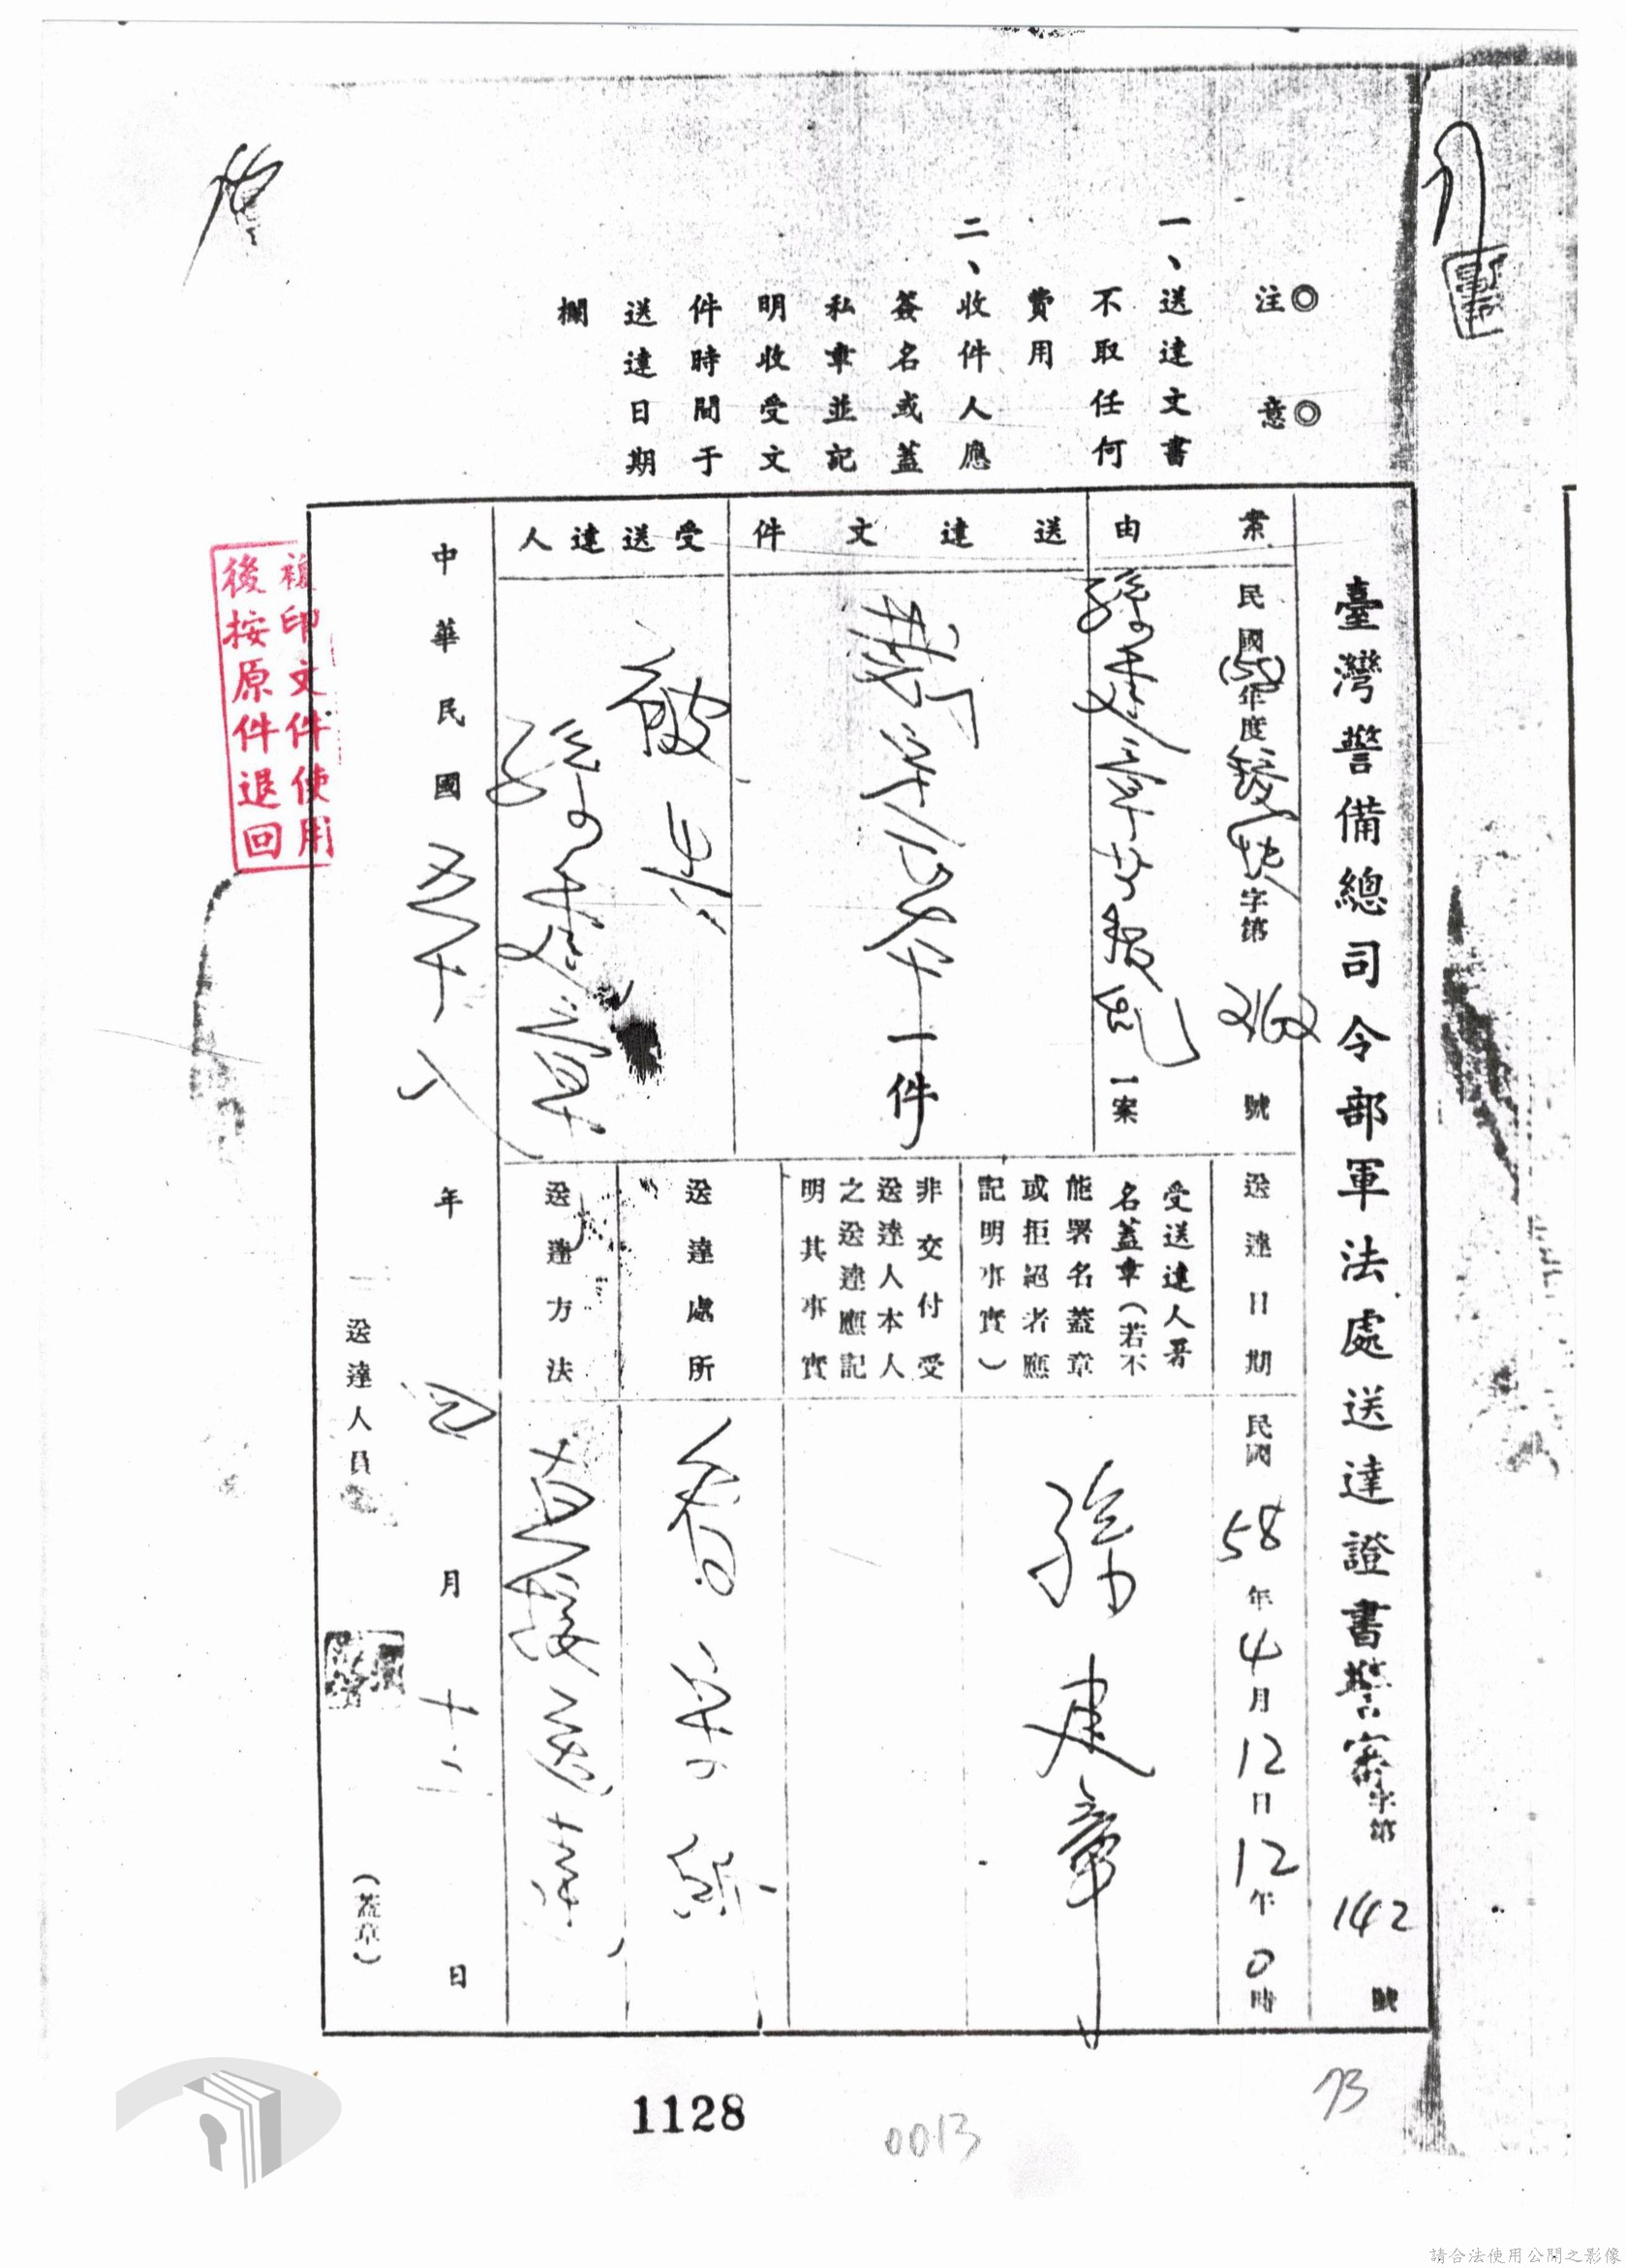 注意
一、送達文書
不取任何
費用
二、收件人應
簽名或蓋
私章並記
明收受文
件時間于
送達日期
欄
臺灣警備總司令部軍法處送達證書警審字第142號
案由
民國(58)年度 字第2162號
孫建章等叛亂一案
送達文件
裁定正本一件
受送達人
被告
孫建章
送達日期
民國58年4月12日12午0時
受送達人署
名蓋章(若不
能署名蓋章
或拒絕者應
記明事實)
孫建章
非交付受
送達人本人
之送達應記
明其事實
送達處所
看守所
送達方法
直接送達
中華民國五十八年四月十二日
送達人員
(蓋章)
複印文件使用
後按原件退回
1128
0013
73
請合法使用公開之影像